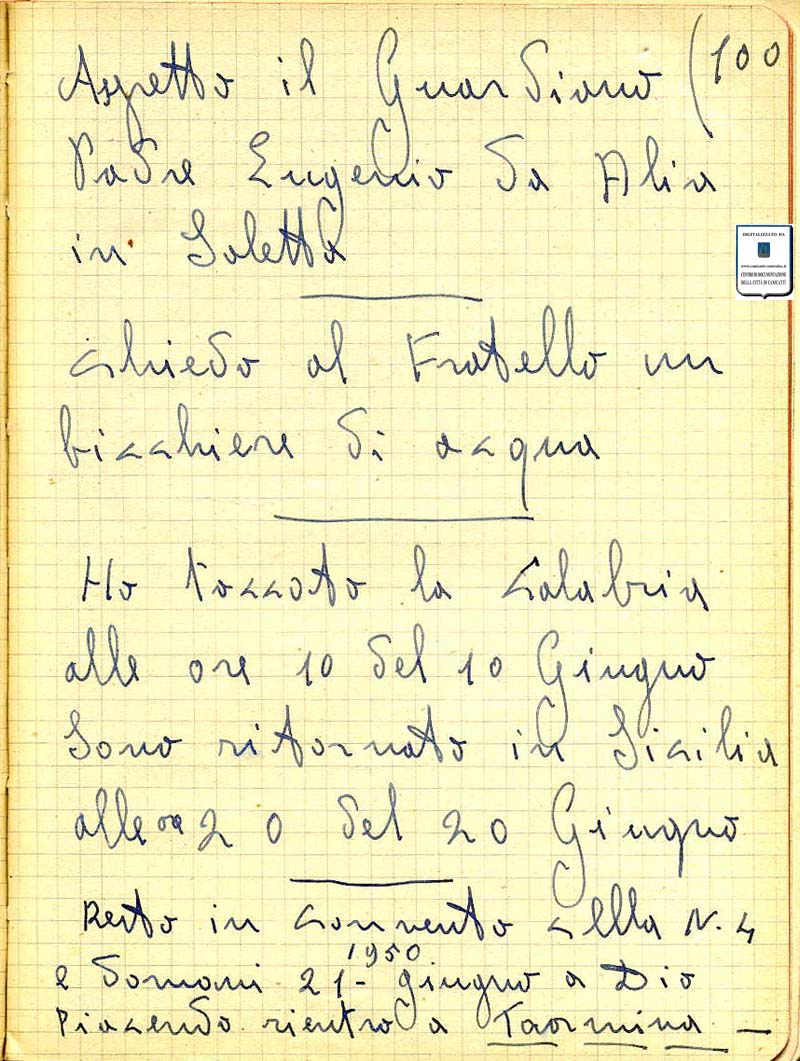 Aspetto il Guardiano (100
Padre Eugenio da Alia
in Saletta
chiedo al Fratello un
bicchiere di acqua
Ho toccato la Calabria
alle ore 10 del 10 Giugno
Sono ritornato in Sicilia
alle ore 20 del 20 Giugno
Resto in convento cella N. 4
1950
e domani 21 - giugno a Dio
Piacendo rientro a Taormina —
DIGITALIZZATO DA
www.canicatti-centrodoc.it
CENTRO DI DOCUMENTAZIONE
DELLA CITTÀ DI CANICATTÌ